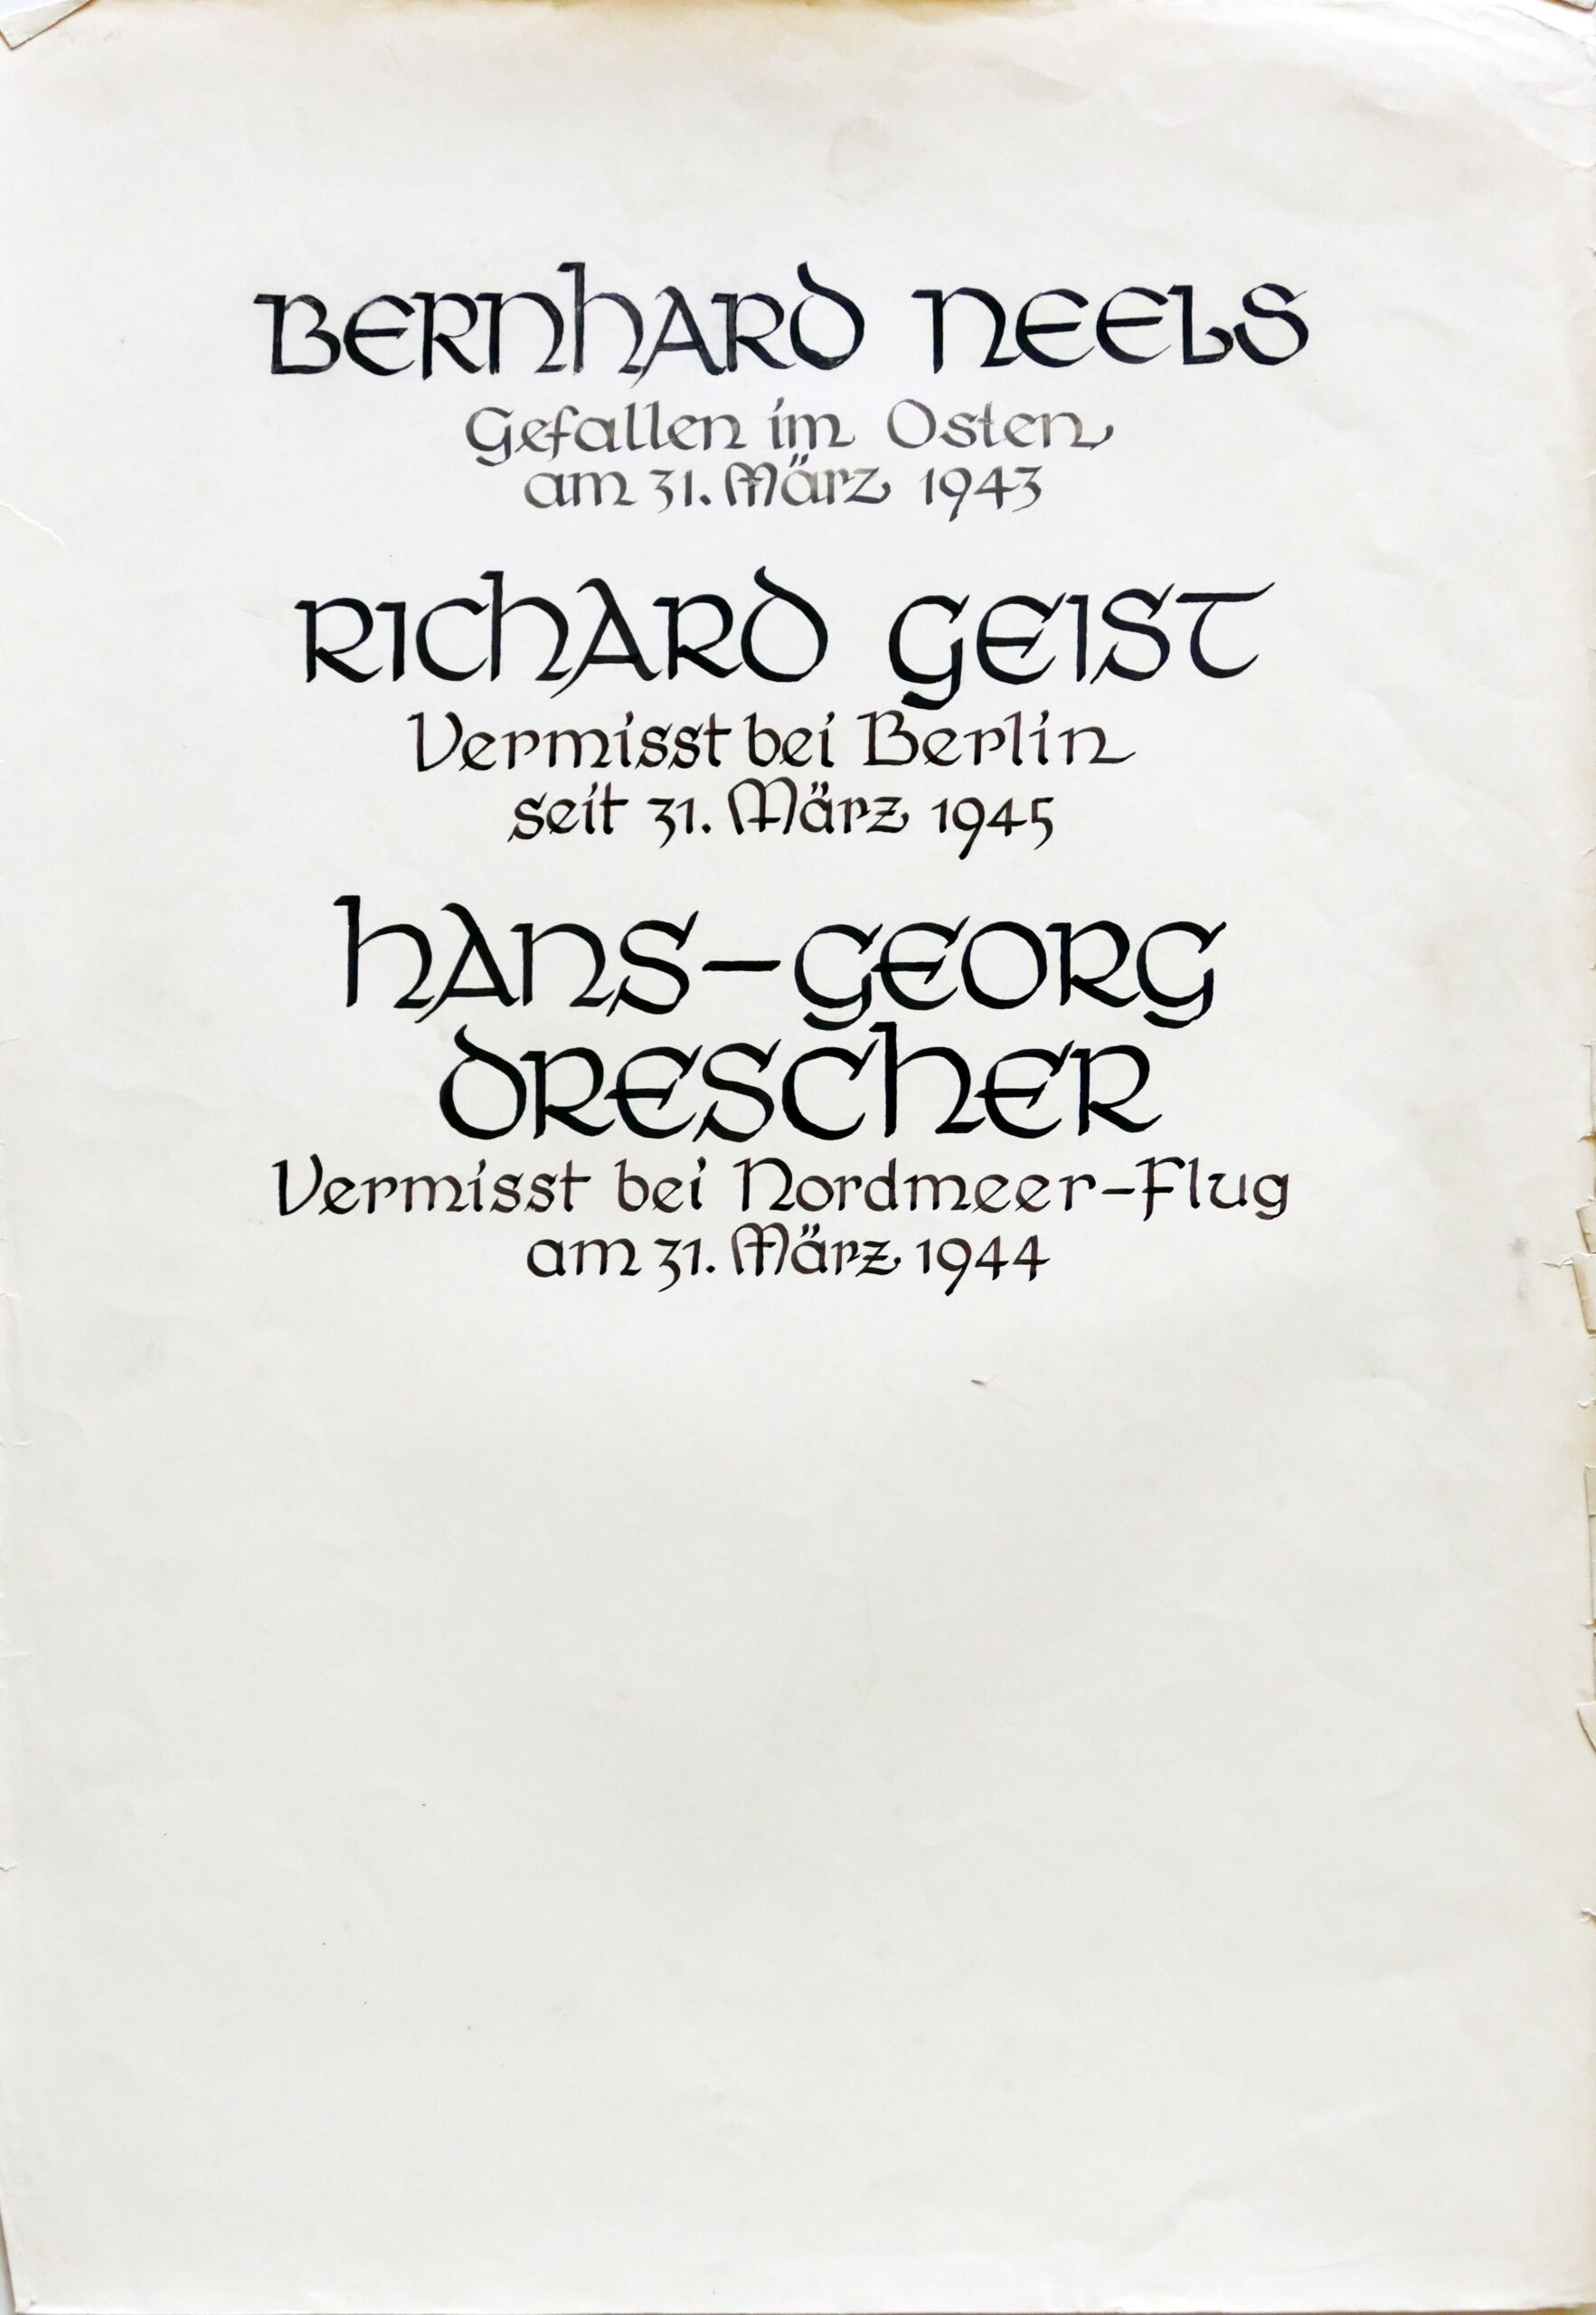 BERNHARD NEELS
Gefallen im Osten
am 31. März 1943
RICHARD GEIST
Vermisst bei Berlin
seit 31. März 1945
HANS-GEORG
DRESCHER
Vermisst bei Nordmeer-Flug
am 31. März 1944